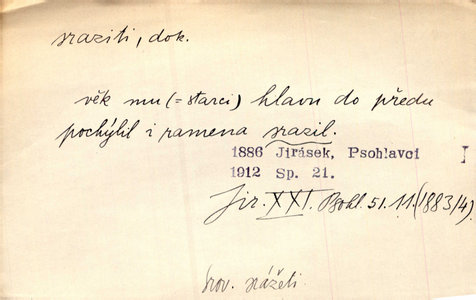 sraziti, dok.
věk mu (= starci) hlavu do předu
pochýlil i ramena srazil.
1886 Jirásek, Psohlavci I
1912 Sp. 21.
Jir. XXI. Bohl. 51. 11. (1883/4)
srov. srážeti